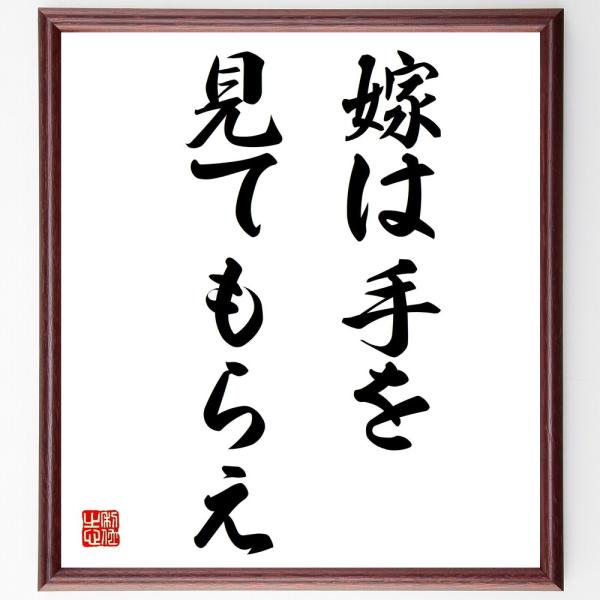 嫁は手を
見てもらえ